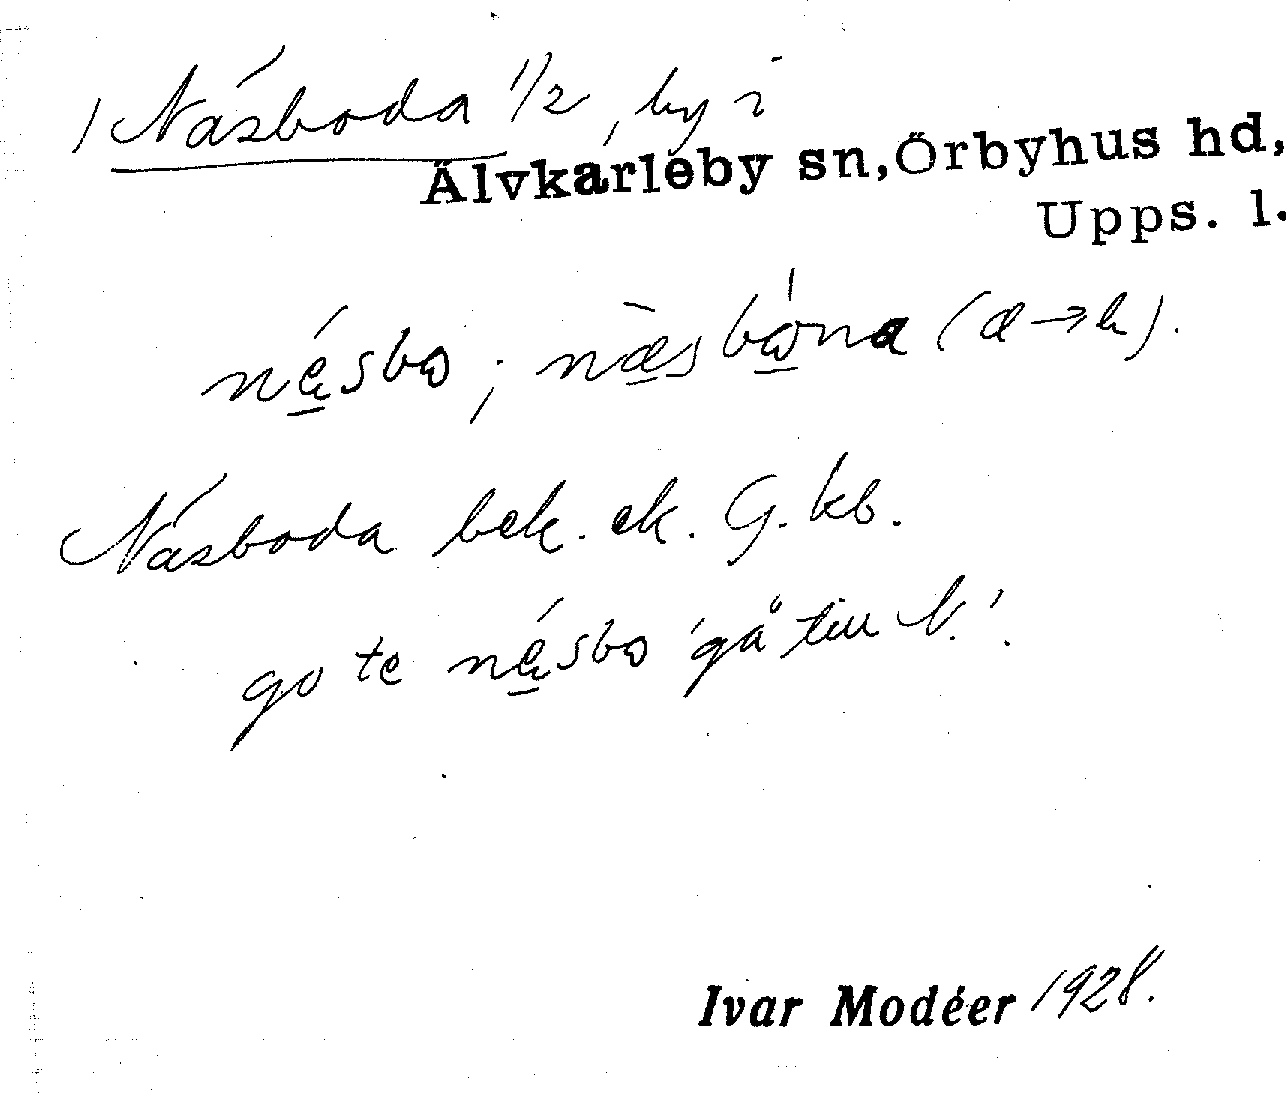 / Näsboda 1/2, by i
Älvkarleby sn, Örbyhus hd,
Upps. l.
näsbo; näsbɷna (a→ä).
Näsboda bek. ek. G. kb.
go te näsbo 'gå till N.'.
Ivar Modéer 1928.